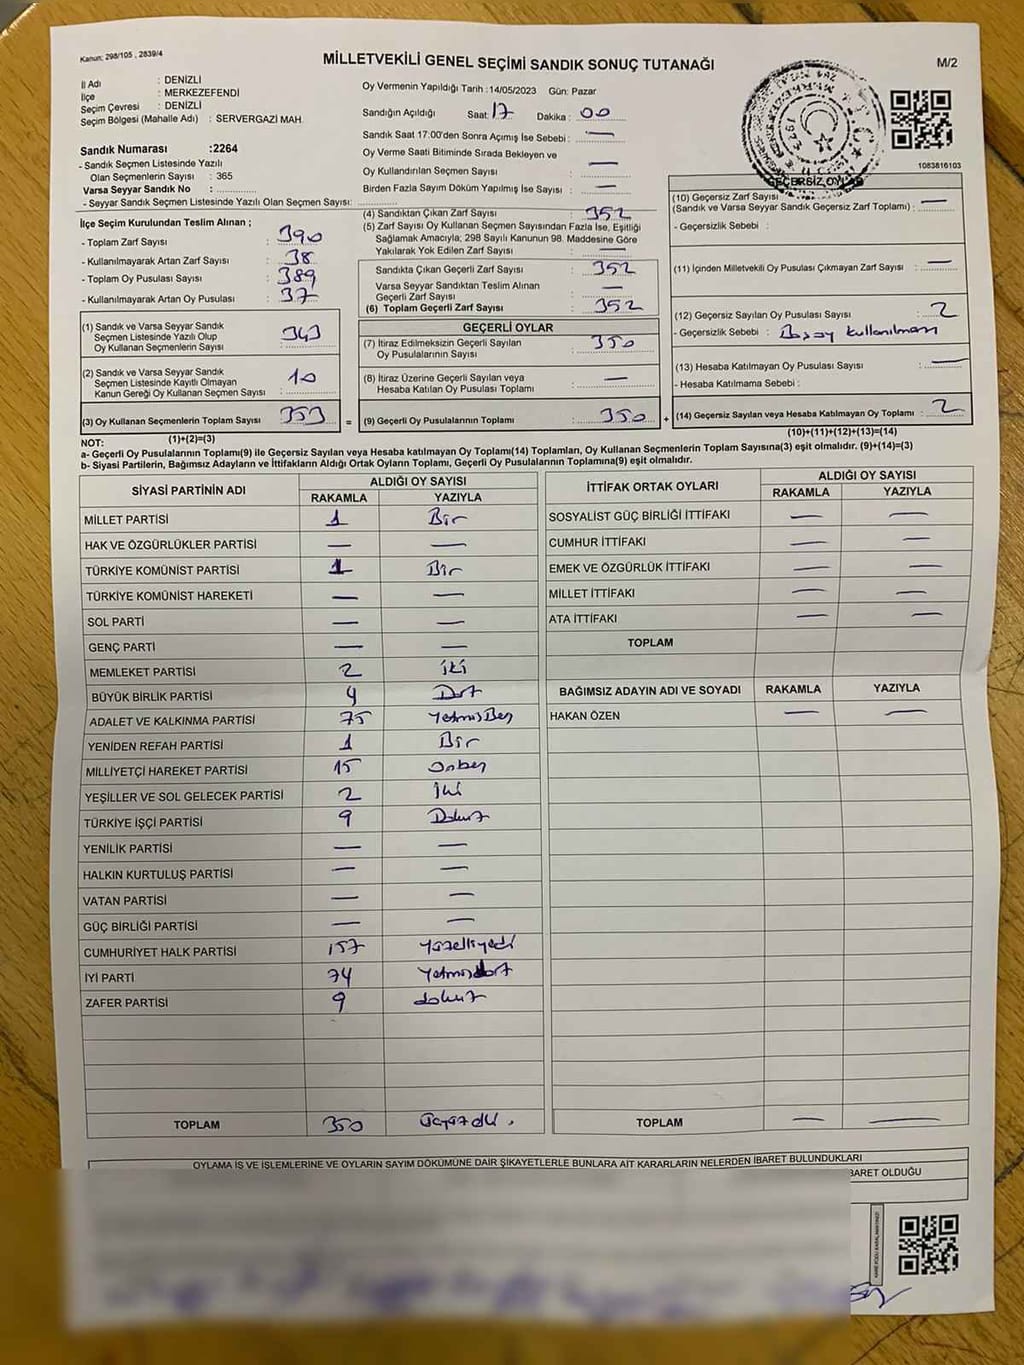 Kanun: 298/105 , 2839/4
MİLLETVEKİLİ GENEL SEÇİMİ SANDIK SONUÇ TUTANAĞI
M/2
İl Adı : DENİZLİ
İlçe : MERKEZEFENDİ
Seçim Çevresi : DENİZLİ
Seçim Bölgesi (Mahalle Adı) : SERVERGAZİ MAH.
Sandık Numarası :2264
- Sandık Seçmen Listesinde Yazılı
Olan Seçmenlerin Sayısı : 365
Varsa Seyyar Sandık No :
- Seyyar Sandık Seçmen Listesinde Yazılı Olan Seçmen Sayısı:
Oy Vermenin Yapıldığı Tarih :14/05/2023 Gün: Pazar
Sandığın Açıldığı Saat: 17 Dakika : 00
Sandık Saat 17:00'den Sonra Açımış İse Sebebi : —
Oy Verme Saati Bitiminde Sırada Bekleyen ve
Oy Kullandırılan Seçmen Sayısı : —
Birden Fazla Sayım Döküm Yapılmış İse Sayısı : —
1083816103
İlçe Seçim Kurulundan Teslim Alınan ;
- Toplam Zarf Sayısı : 390
- Kullanılmayarak Artan Zarf Sayısı : 38
- Toplam Oy Pusulası Sayısı : 389
- Kullanılmayarak Artan Oy Pusulası : 37
(1) Sandık ve Varsa Seyyar Sandık
Seçmen Listesinde Yazılı Olup
Oy Kullanan Seçmenlerin Sayısı : 343
(2) Sandık ve Varsa Seyyar Sandık
Seçmen Listesinde Kayıtlı Olmayan
Kanun Gereği Oy Kullanan Seçmen Sayısı : 10
(3) Oy Kullanan Seçmenlerin Toplam Sayısı : 353
(1)+(2)=(3)
(4) Sandıktan Çıkan Zarf Sayısı : 352
(5) Zarf Sayısı Oy Kullanan Seçmen Sayısından Fazla İse, Eşitliği
Sağlamak Amacıyla; 298 Sayılı Kanunun 98. Maddesine Göre
Yakılarak Yok Edilen Zarf Sayısı : —
Sandıkta Çıkan Geçerli Zarf Sayısı : 352
Varsa Seyyar Sandıktan Teslim Alınan
Geçerli Zarf Sayısı : —
(6) Toplam Geçerli Zarf Sayısı : 352
GEÇERLİ OYLAR
(7) İtiraz Edilmeksizin Geçerli Sayılan
Oy Pusulalarının Sayısı : 350
(8) İtiraz Üzerine Geçerli Sayılan veya
Hesaba Katılan Oy Pusulası Toplamı : —
= (9) Geçerli Oy Pusulalarının Toplamı : 350 +
GEÇERSİZ OYLAR
(10) Geçersiz Zarf Sayısı
(Sandık ve Varsa Seyyar Sandık Geçersiz Zarf Toplamı) : —
- Geçersizlik Sebebi :
(11) İçinden Milletvekili Oy Pusulası Çıkmayan Zarf Sayısı : —
(12) Geçersiz Sayılan Oy Pusulası Sayısı : 2
- Geçersizlik Sebebi : kullanılması
(13) Hesaba Katılmayan Oy Pusulası Sayısı : —
- Hesaba Katılmama Sebebi :
(14) Geçersiz Sayılan veya Hesaba Katılmayan Oy Toplamı : 2
(10)+(11)+(12)+(13)=(14)
NOT:
a- Geçerli Oy Pusulalarının Toplamı(9) ile Geçersiz Sayılan veya Hesaba katılmayan Oy Toplamı(14) Toplamları, Oy Kullanan Seçmenlerin Toplam Sayısına(3) eşit olmalıdır. (9)+(14)=(3)
b- Siyasi Partilerin, Bağımsız Adayların ve İttifakların Aldığı Ortak Oyların Toplamı, Geçerli Oy Pusulalarının Toplamına(9) eşit olmalıdır.
SİYASİ PARTİNİN ADI ALDIĞI OY SAYISI
RAKAMLA YAZIYLA
MİLLET PARTİSİ 1 Bir
HAK VE ÖZGÜRLÜKLER PARTİSİ — —
TÜRKİYE KOMÜNİST PARTİSİ 1 Bir
TÜRKİYE KOMÜNİST HAREKETİ — —
SOL PARTİ — —
GENÇ PARTİ — —
MEMLEKET PARTİSİ 2 iki
BÜYÜK BİRLİK PARTİSİ 4 Dört
ADALET VE KALKINMA PARTİSİ 75 YetmişBeş
YENİDEN REFAH PARTİSİ 1 Bir
MİLLİYETÇİ HAREKET PARTİSİ 15 Onbeş
YEŞİLLER VE SOL GELECEK PARTİSİ 2 iki
TÜRKİYE İŞÇİ PARTİSİ 9 Dokuz
YENİLİK PARTİSİ — —
HALKIN KURTULUŞ PARTİSİ — —
VATAN PARTİSİ — —
GÜÇ BİRLİĞİ PARTİSİ — —
CUMHURİYET HALK PARTİSİ 157 Yüzelliyedi
İYİ PARTİ 74 Yetmişdört
ZAFER PARTİSİ 9 dokuz
TOPLAM 350 Üçyüzelli.
İTTİFAK ORTAK OYLARI ALDIĞI OY SAYISI
RAKAMLA YAZIYLA
SOSYALİST GÜÇ BİRLİĞİ İTTİFAKI — —
CUMHUR İTTİFAKI — —
EMEK VE ÖZGÜRLÜK İTTİFAKI — —
MİLLET İTTİFAKI — —
ATA İTTİFAKI — —
TOPLAM
BAĞIMSIZ ADAYIN ADI VE SOYADI RAKAMLA YAZIYLA
HAKAN ÖZEN — —
TOPLAM — —
OYLAMA İŞ VE İŞLEMLERİNE VE OYLARIN SAYIM DÖKÜMÜNE DAİR ŞİKAYETLERLE BUNLARA AİT KARARLARIN NELERDEN İBARET BULUNDUKLARI
BARET OLDUĞU